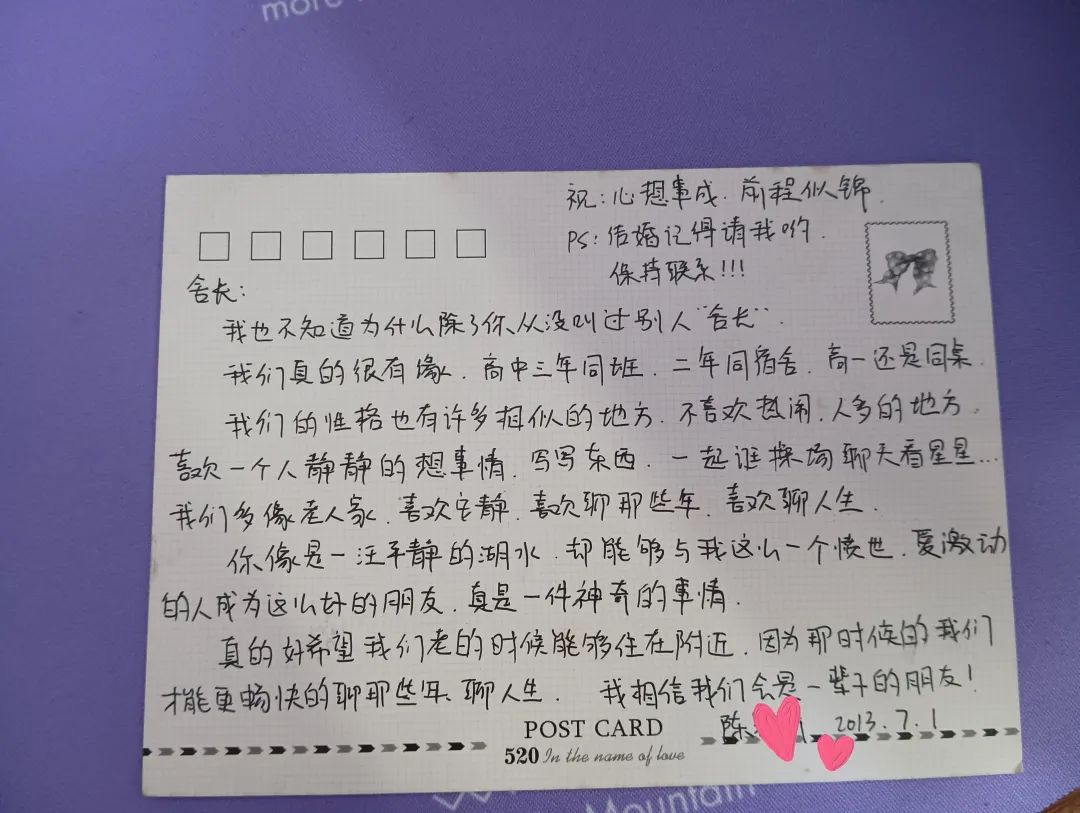 more
祝：心想事成．前程似锦．
PS：结婚记得请我哟．
保持联系！！！
舍长：
我也不知道为什么除了你、从没叫过别人“舍长”．
我们真的很有缘．高中三年同班．二年同宿舍．高一还是同桌．
我们的性格也有许多相似的地方．不喜欢热闹．人多的地方．
喜欢一个人静静的想事情．写写东西．一起逛操场聊天看星星…
我们多像老人家．喜欢安静．喜欢聊那些年．喜欢聊人生．
你像是一汪平静的湖水．却能够与我这么一个愤世．爱激动
的人成为这么好的朋友．真是一件神奇的事情．
真的好希望我们老的时候能够住在附近．因为那时候的我们
才能更畅快的聊那些年、聊人生． 我相信我们会是一辈子的朋友！
陈 2013.7.1
POST CARD
520 In the name of love
Mountain